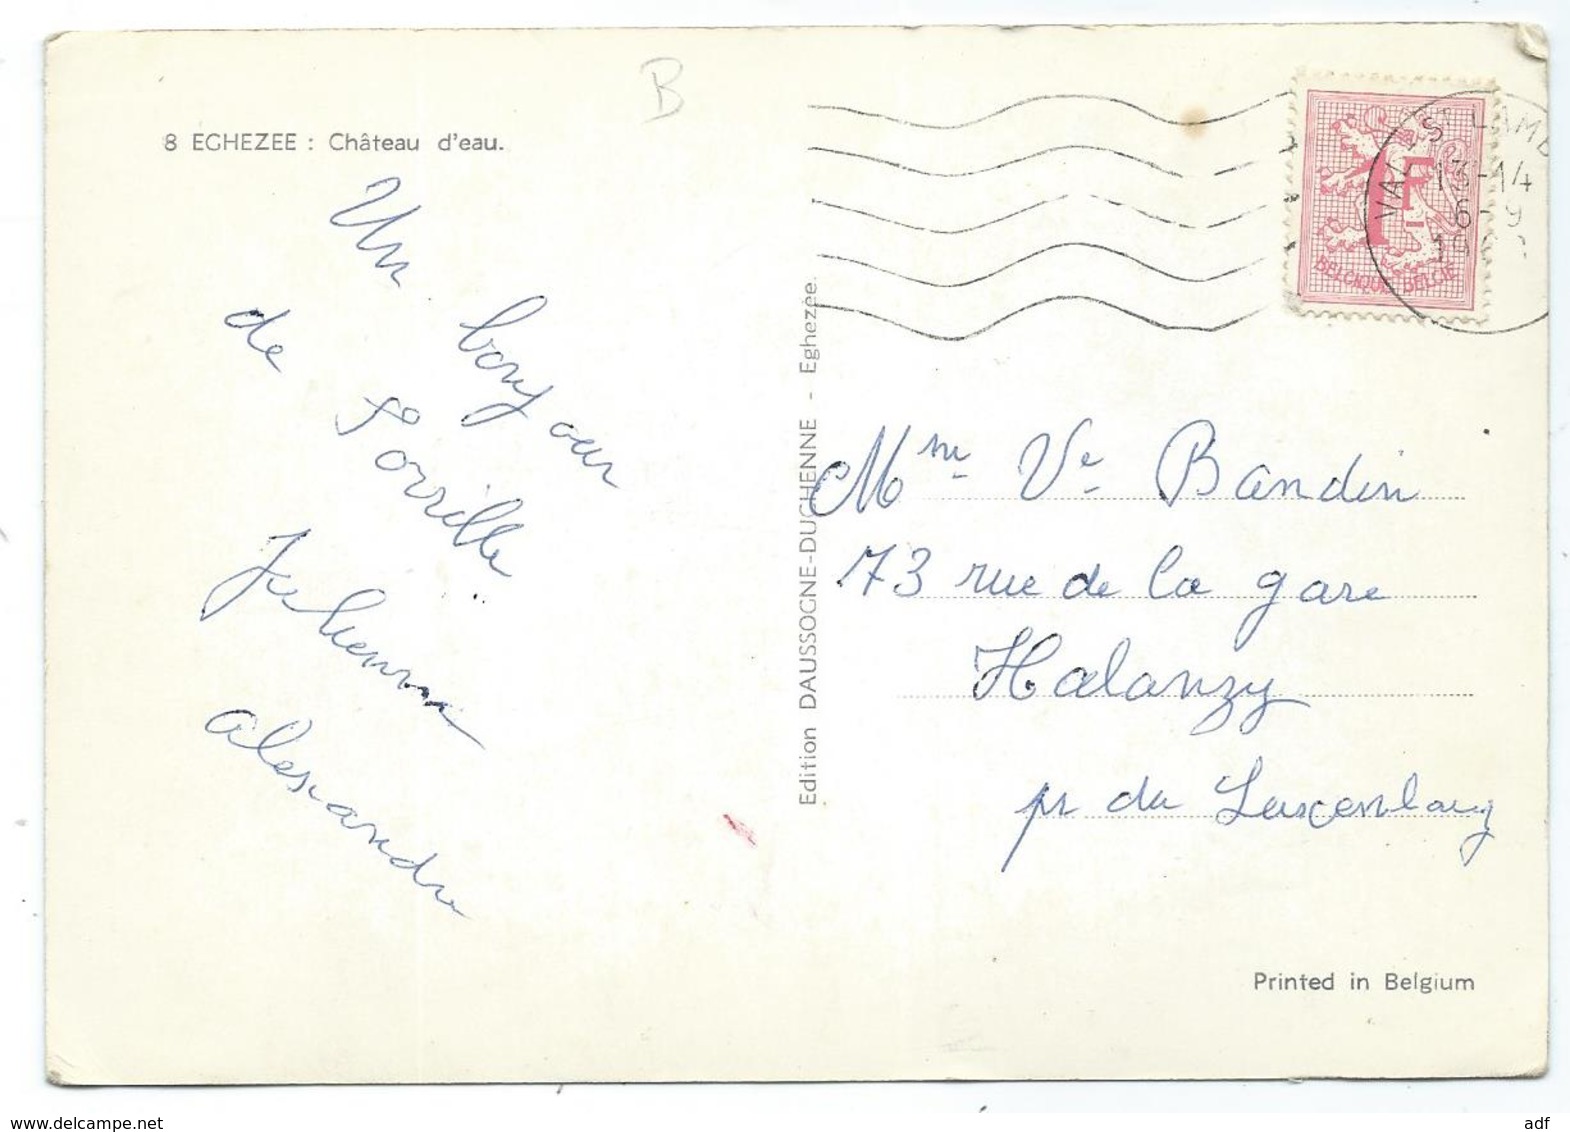 B
8 EGHEZEE : Château d'eau.
Un bonjour
de Forville
Julienne
alexandre
Edition DAUSSOGNE-DUCHENNE - Eghezée
1F
BELGIQUE-BELGIE
VAL ST LAMB
13-14
6-9
19
Mme Ve Bandin
73 rue de la gare
Halanzy
pr du Luxenbourg
Printed in Belgium
adf